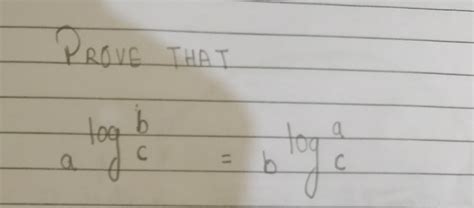 PROVE THAT
a^{log_c^b} = b^{log_c^a}